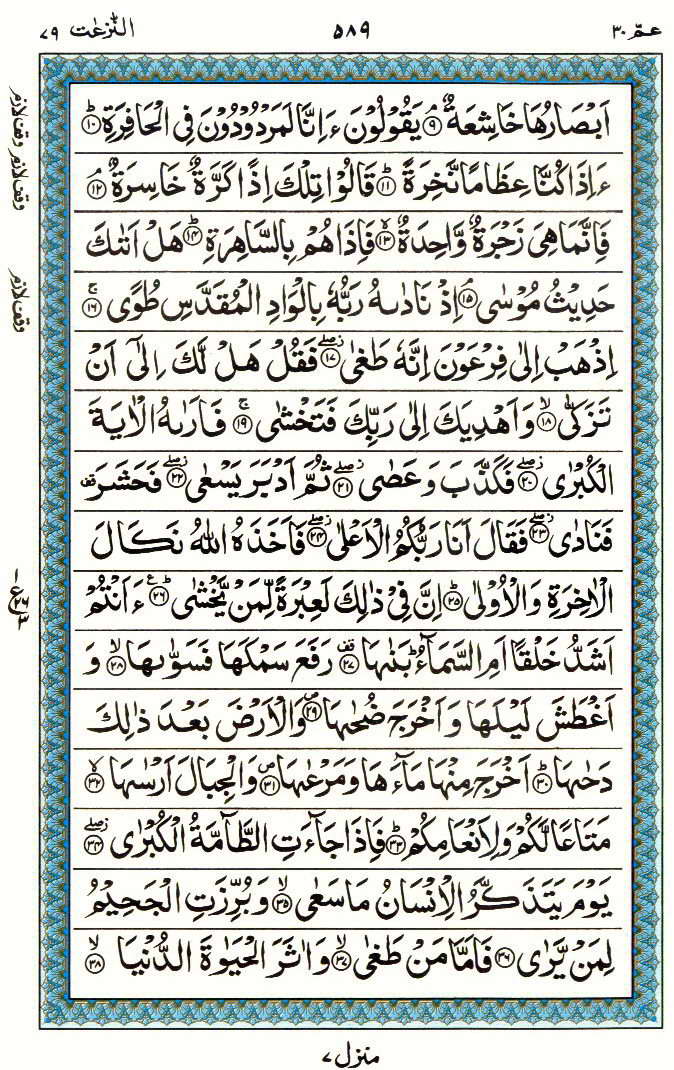 عمّ ٣٠ ٥٨٩ النّٰزعٰت ٧٩
اَبْصَارُهَا خَاشِعَةٌ ۘ ۹ يَقُوْلُوْنَ ءَاِنَّا لَمَرْدُوْدُوْنَ فِى الْحَافِرَةِ ؕ ۱۰
ءَاِذَا كُنَّا عِظَامًا نَّخِرَةً ؕ ۱۱ قَالُوْا تِلْكَ اِذًا كَرَّةٌ خَاسِرَةٌ ۘ ۱۲
فَاِنَّمَا هِىَ زَجْرَةٌ وَّاحِدَةٌ ۙ ۱۳ فَاِذَا هُمْ بِالسَّاهِرَةِ ؕ ۱۴ هَلْ اَتٰٮكَ
حَدِيْثُ مُوْسٰى ۘ ۱۵ اِذْ نَادٰٮهُ رَبُّهٗ بِالْوَادِ الْمُقَدَّسِ طُوًى ۚ ۱۶
اِذْهَبْ اِلٰى فِرْعَوْنَ اِنَّهٗ طَغٰى ۖ ۱۷ فَقُلْ هَلْ لَّكَ اِلٰٓى اَنْ
تَزَكّٰى ۙ ۱۸ وَاَهْدِيَكَ اِلٰى رَبِّكَ فَتَخْشٰى ۚ ۱۹ فَاَرٰٮهُ الْاٰيَةَ
الْكُبْرٰى ۖ ۲۰ فَكَذَّبَ وَعَصٰى ۖ ۲۱ ثُمَّ اَدْبَرَ يَسْعٰى ۖ ۲۲ فَحَشَرَ قف
فَنَادٰى ۖ ۲۳ فَقَالَ اَنَا رَبُّكُمُ الْاَعْلٰى ۖ ۲۴ فَاَخَذَهُ اللّٰهُ نَكَالَ
الْاٰخِرَةِ وَالْاُوْلٰى ؕ ۲۵ اِنَّ فِىْ ذٰلِكَ لَعِبْرَةً لِّمَنْ يَّخْشٰى ؕ ۲۶ ءَاَنْتُمْ
اَشَدُّ خَلْقًا اَمِ السَّمَآءُ ؕ بَنٰٮهَا قف ۲۷ رَفَعَ سَمْكَهَا فَسَوّٰٮهَا ۙ ۲۸ وَ
اَغْطَشَ لَيْلَهَا وَاَخْرَجَ ضُحٰٮهَا ۖ ۲۹ وَالْاَرْضَ بَعْدَ ذٰلِكَ
دَحٰٮهَا ؕ ۳۰ اَخْرَجَ مِنْهَا مَآءَهَا وَمَرْعٰٮهَا ۖ ۳۱ وَالْجِبَالَ اَرْسٰٮهَا ۙ ۳۲
مَتَاعًا لَّكُمْ وَلِاَنْعَامِكُمْ ؕ ۳۳ فَاِذَا جَآءَتِ الطَّآمَّةُ الْكُبْرٰى ۖ ۳۴
يَوْمَ يَتَذَكَّرُ الْاِنْسَانُ مَا سَعٰى ۙ ۳۵ وَبُرِّزَتِ الْجَحِيْمُ
لِمَنْ يَّرٰى ۳۶ فَاَمَّا مَنْ طَغٰى ۙ ۳۷ وَاٰثَرَ الْحَيٰوةَ الدُّنْيَا ۙ ۳۸
وقف لازم
وقف لازم
وقف لازم
١ ع ٢٦ ٣
منزل ٧